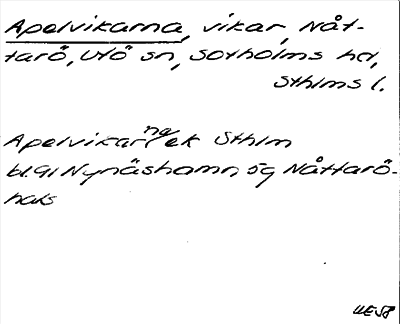 Apelvikarna, vikar, Nåt-
tarö, Utö sn, Sotholms hd,
Sthlms l.
Apelvikarna ek Sthlm
bl. 91 Nynäshamn, sg Nåttarö-
haks
WESB